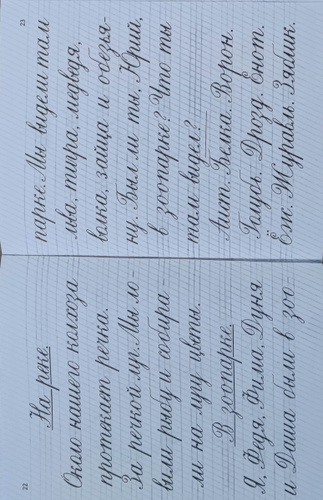 22
На реке.
Около нашего колхоза
протекает речка.
За речкой луг. Мы ло-
вили рыбу и собира-
ли на лугу цветы.
В зоопарке.
Я, Федя, Фила, Дуня
и Даша были в зоо-
23
парке. Мы видели там
льва, тигра, медведя,
волка, зайца и обезья-
ну. Был ли ты, Юрий,
в зоопарке? Что ты
там видел?
Аист. Белка. Ворон.
Голубь. Дрозд. Енот.
Ёж. Журавль. Зяблик.